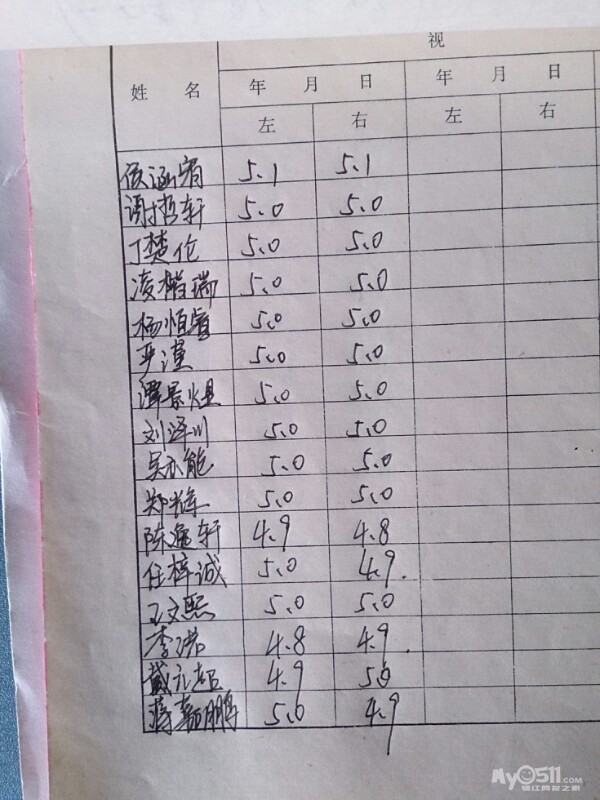 视
姓 名 年 月 日 年 月 日
左 右 左 右
侯涵 5.1 5.1
谢哲轩 5.0 5.0
丁楚伦 5.0 5.0
凌楷瑞 5.0 5.0
杨恒睿 5.0 5.0
尹谨 5.0 5.0
谭景煜 5.0 5.0
刘泽川 5.0 5.0
吴亦能 5.0 5.0
郑 5.0 5.0
陈逸轩 4.9 4.8
任梓诚 5.0 4.9.
王文熙 5.0 5.0
李浩 4.8 4.9.
戴元超 4.9 5.0
蒋嘉鹏 5.0 4.9
My0511.com